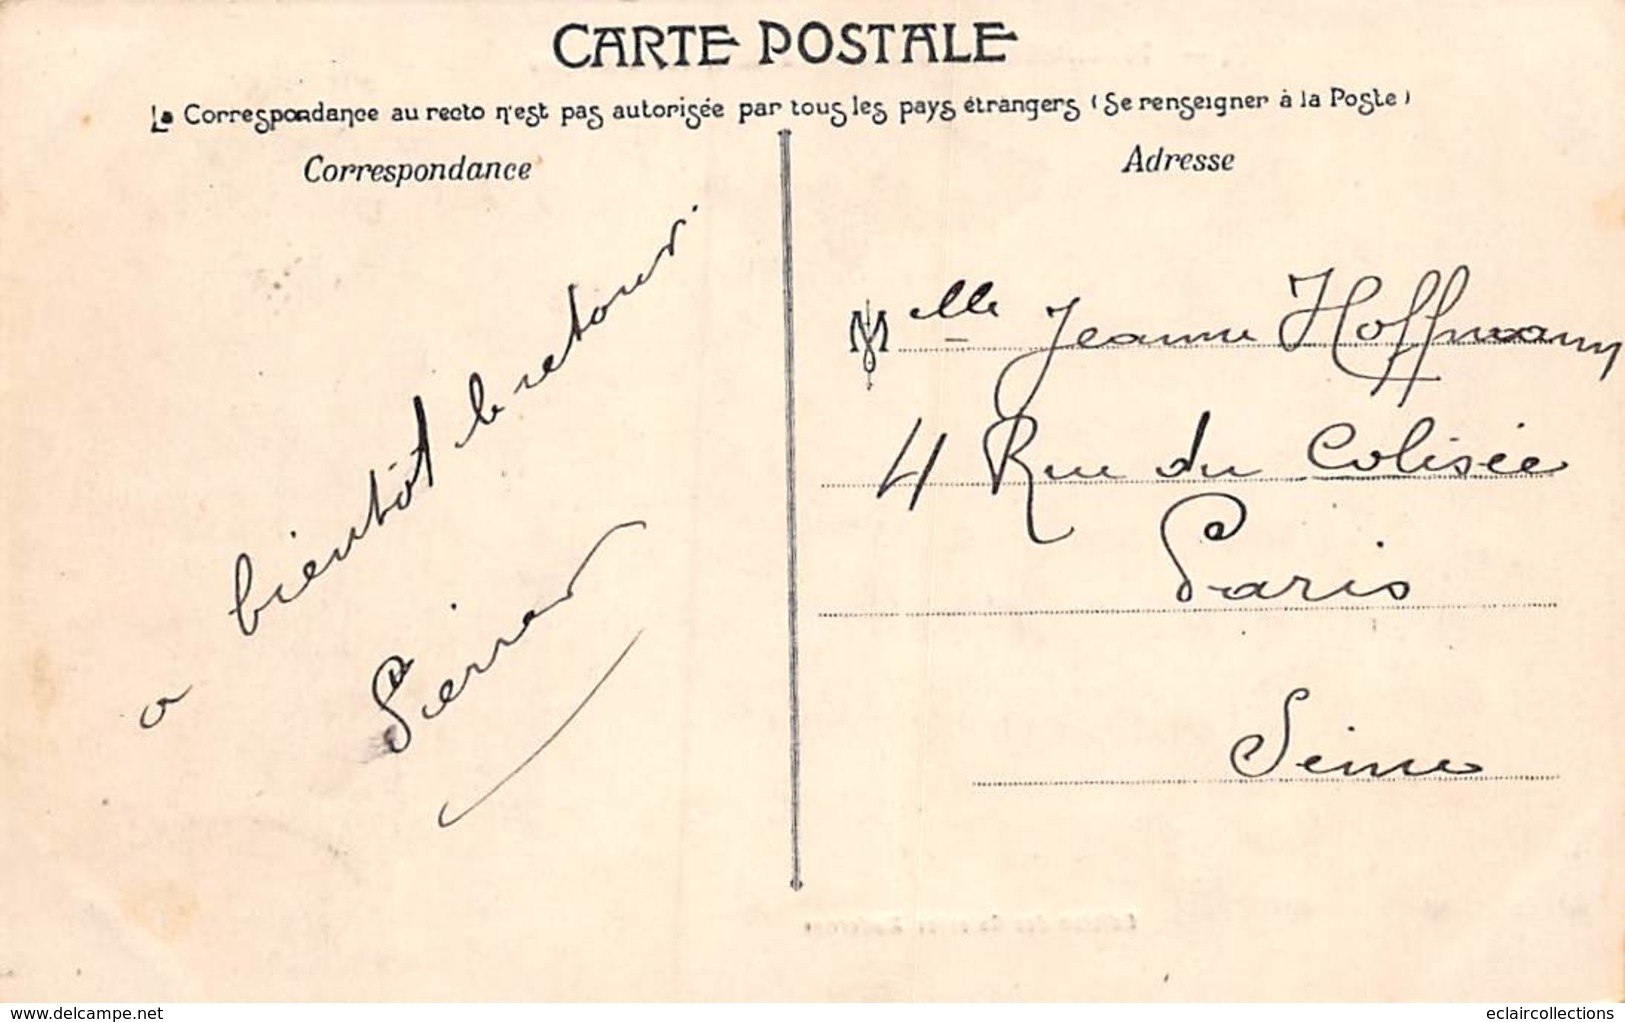 CARTE POSTALE
La Correspondance au recto n'est pas autorisée par tous les pays étrangers (Se renseigner à la Poste)
Correspondance
Adresse
a bientôt le retour.
Pierre
Mlle Jeanne Hoffmann
4 Rue du Colisée
Paris
Seine
www.delcampe.net
eclaircollections